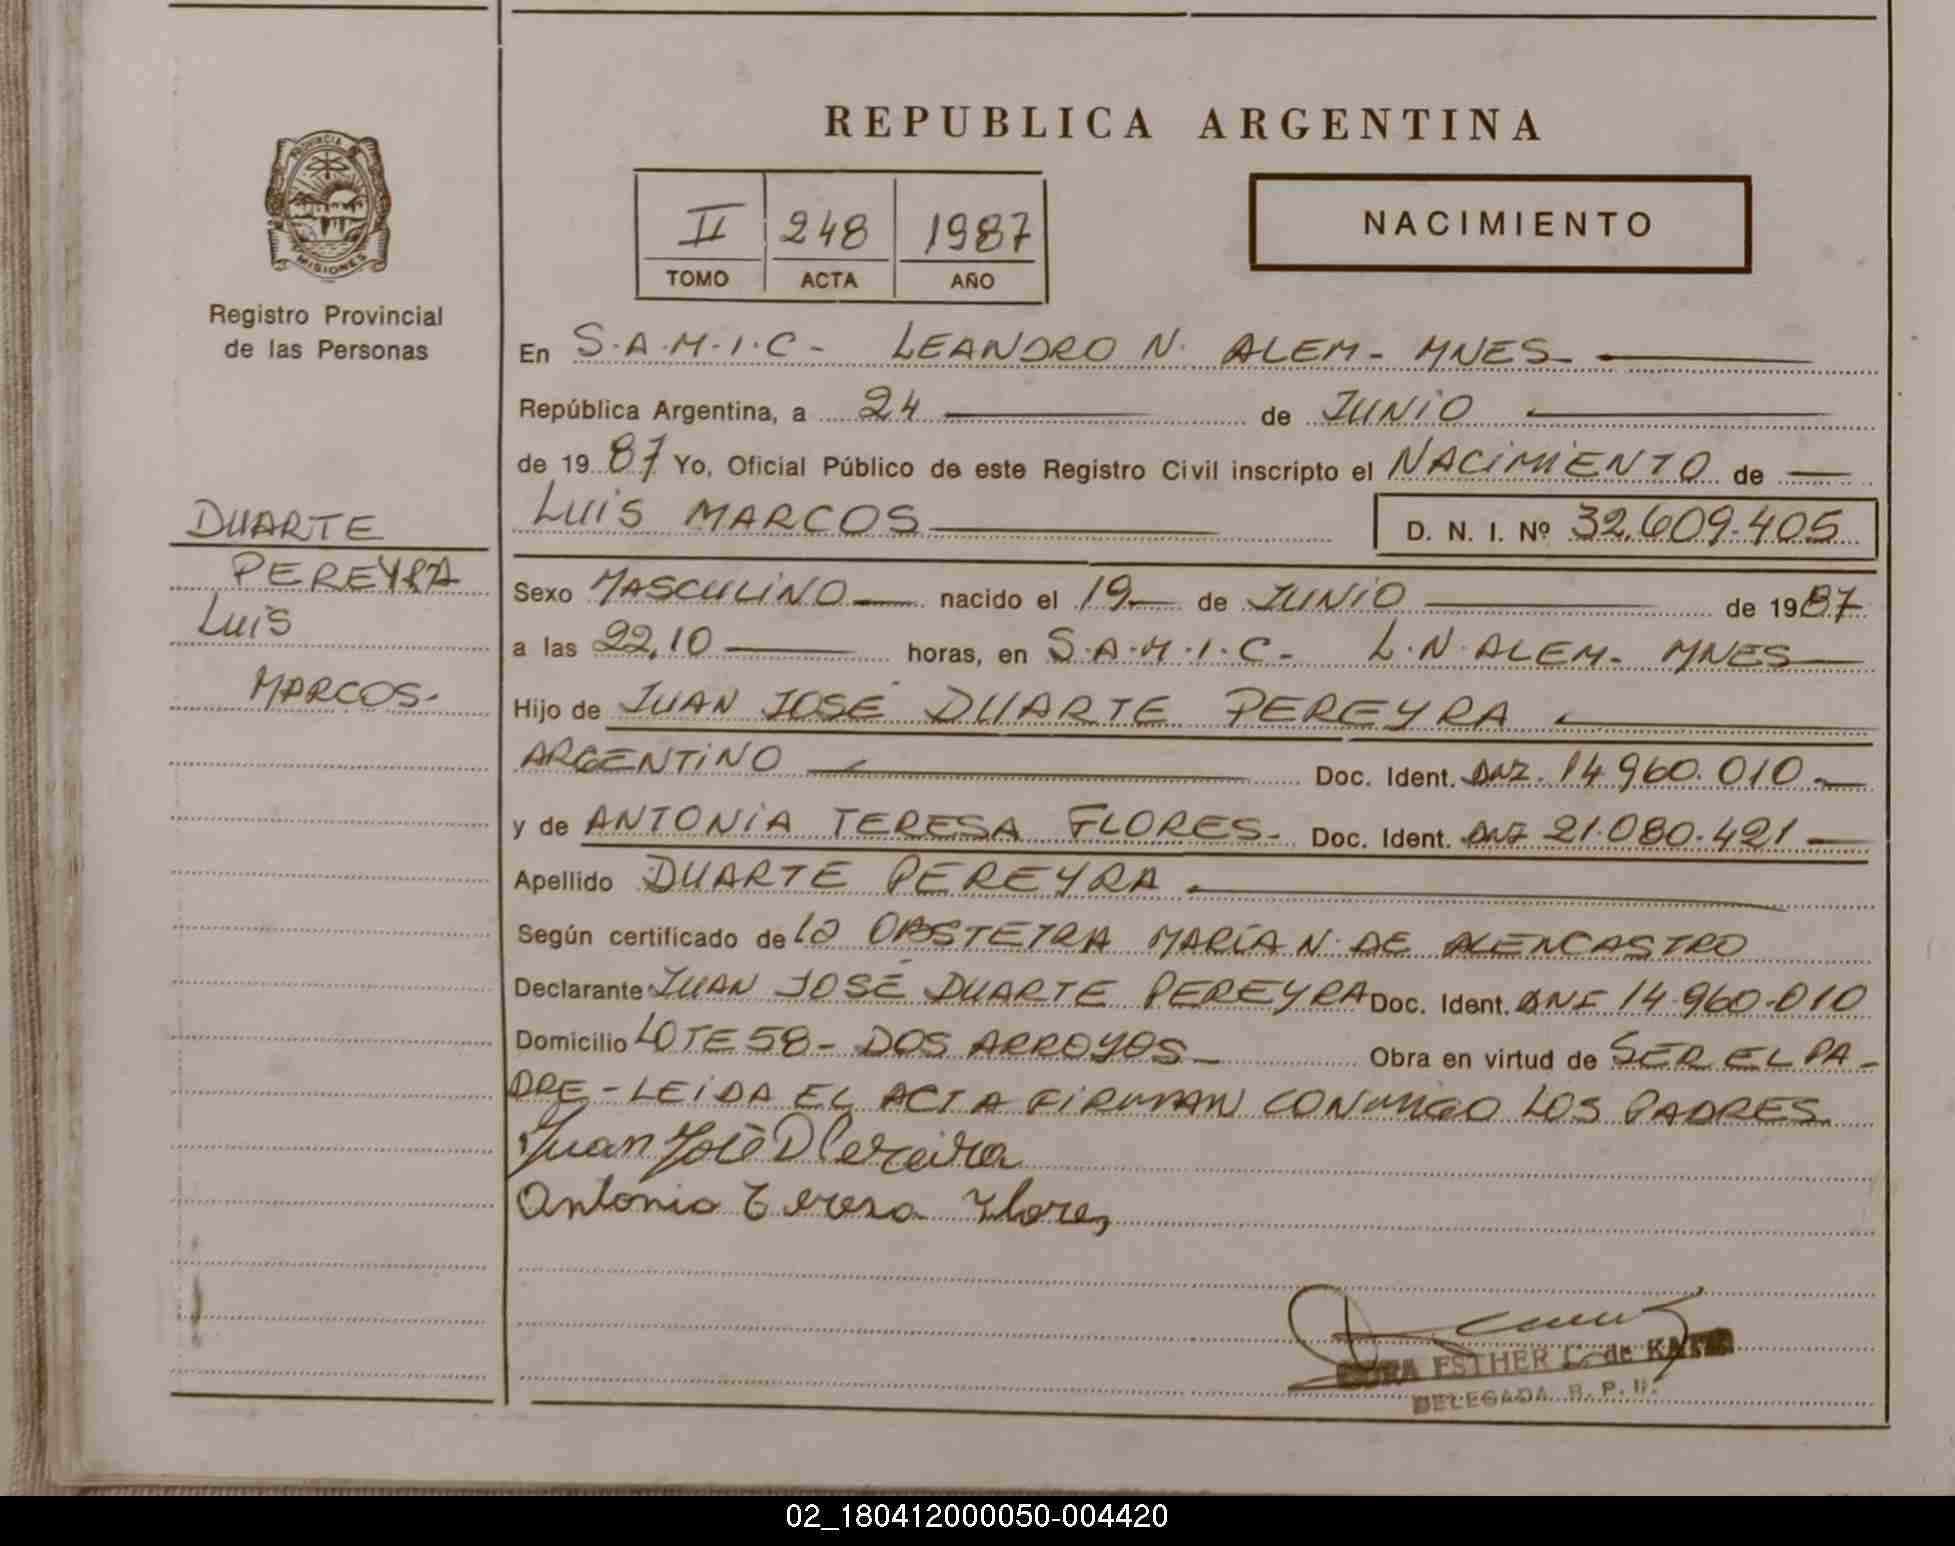 REPUBLICA ARGENTINA
PROVINCIA DE
MISIONES
Registro Provincial
de las Personas
II 248 1987
TOMO ACTA AÑO
NACIMIENTO
En S.A.M.I.C - LEANDRO N. ALEM - MNES -
República Argentina, a 24 de JUNIO
de 19 87 Yo, Oficial Público de este Registro Civil inscripto el NACIMIENTO de
LUIS MARCOS D. N. I. Nº 32.609.405
DUARTE
PEREYRA
LUIS
MARCOS-
Sexo MASCULINO nacido el 19 de JUNIO de 1987
a las 22,10 horas, en S.A.M.I.C - L.N. ALEM - MNES
Hijo de JUAN JOSÉ DUARTE PEREYRA
ARGENTINO Doc. Ident. DNI. 14.960.010
y de ANTONIA TERESA FLORES - Doc. Ident. DNI 21.080.421
Apellido DUARTE PEREYRA
Según certificado de la OBSTETRA MARÍA N. DE ALENCASTRO
Declarante JUAN JOSÉ DUARTE PEREYRA Doc. Ident. DNI 14.960.010
Domicilio LOTE 58 - DOS ARROYOS - Obra en virtud de SER EL PA-
DRE - LEIDA EL ACTA FIRMAN CONMIGO LOS PADRES
Juan José D Pereira
Antonia Teresa Flores
ESTHER de
DELEGADA R. P.
02_180412000050-004420